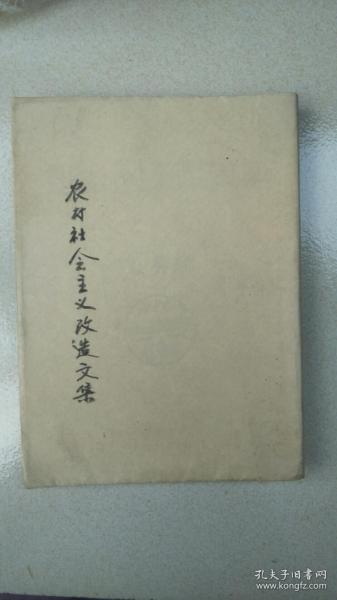 农村社会主义改造文集
孔夫子旧书网
www.kongfz.com